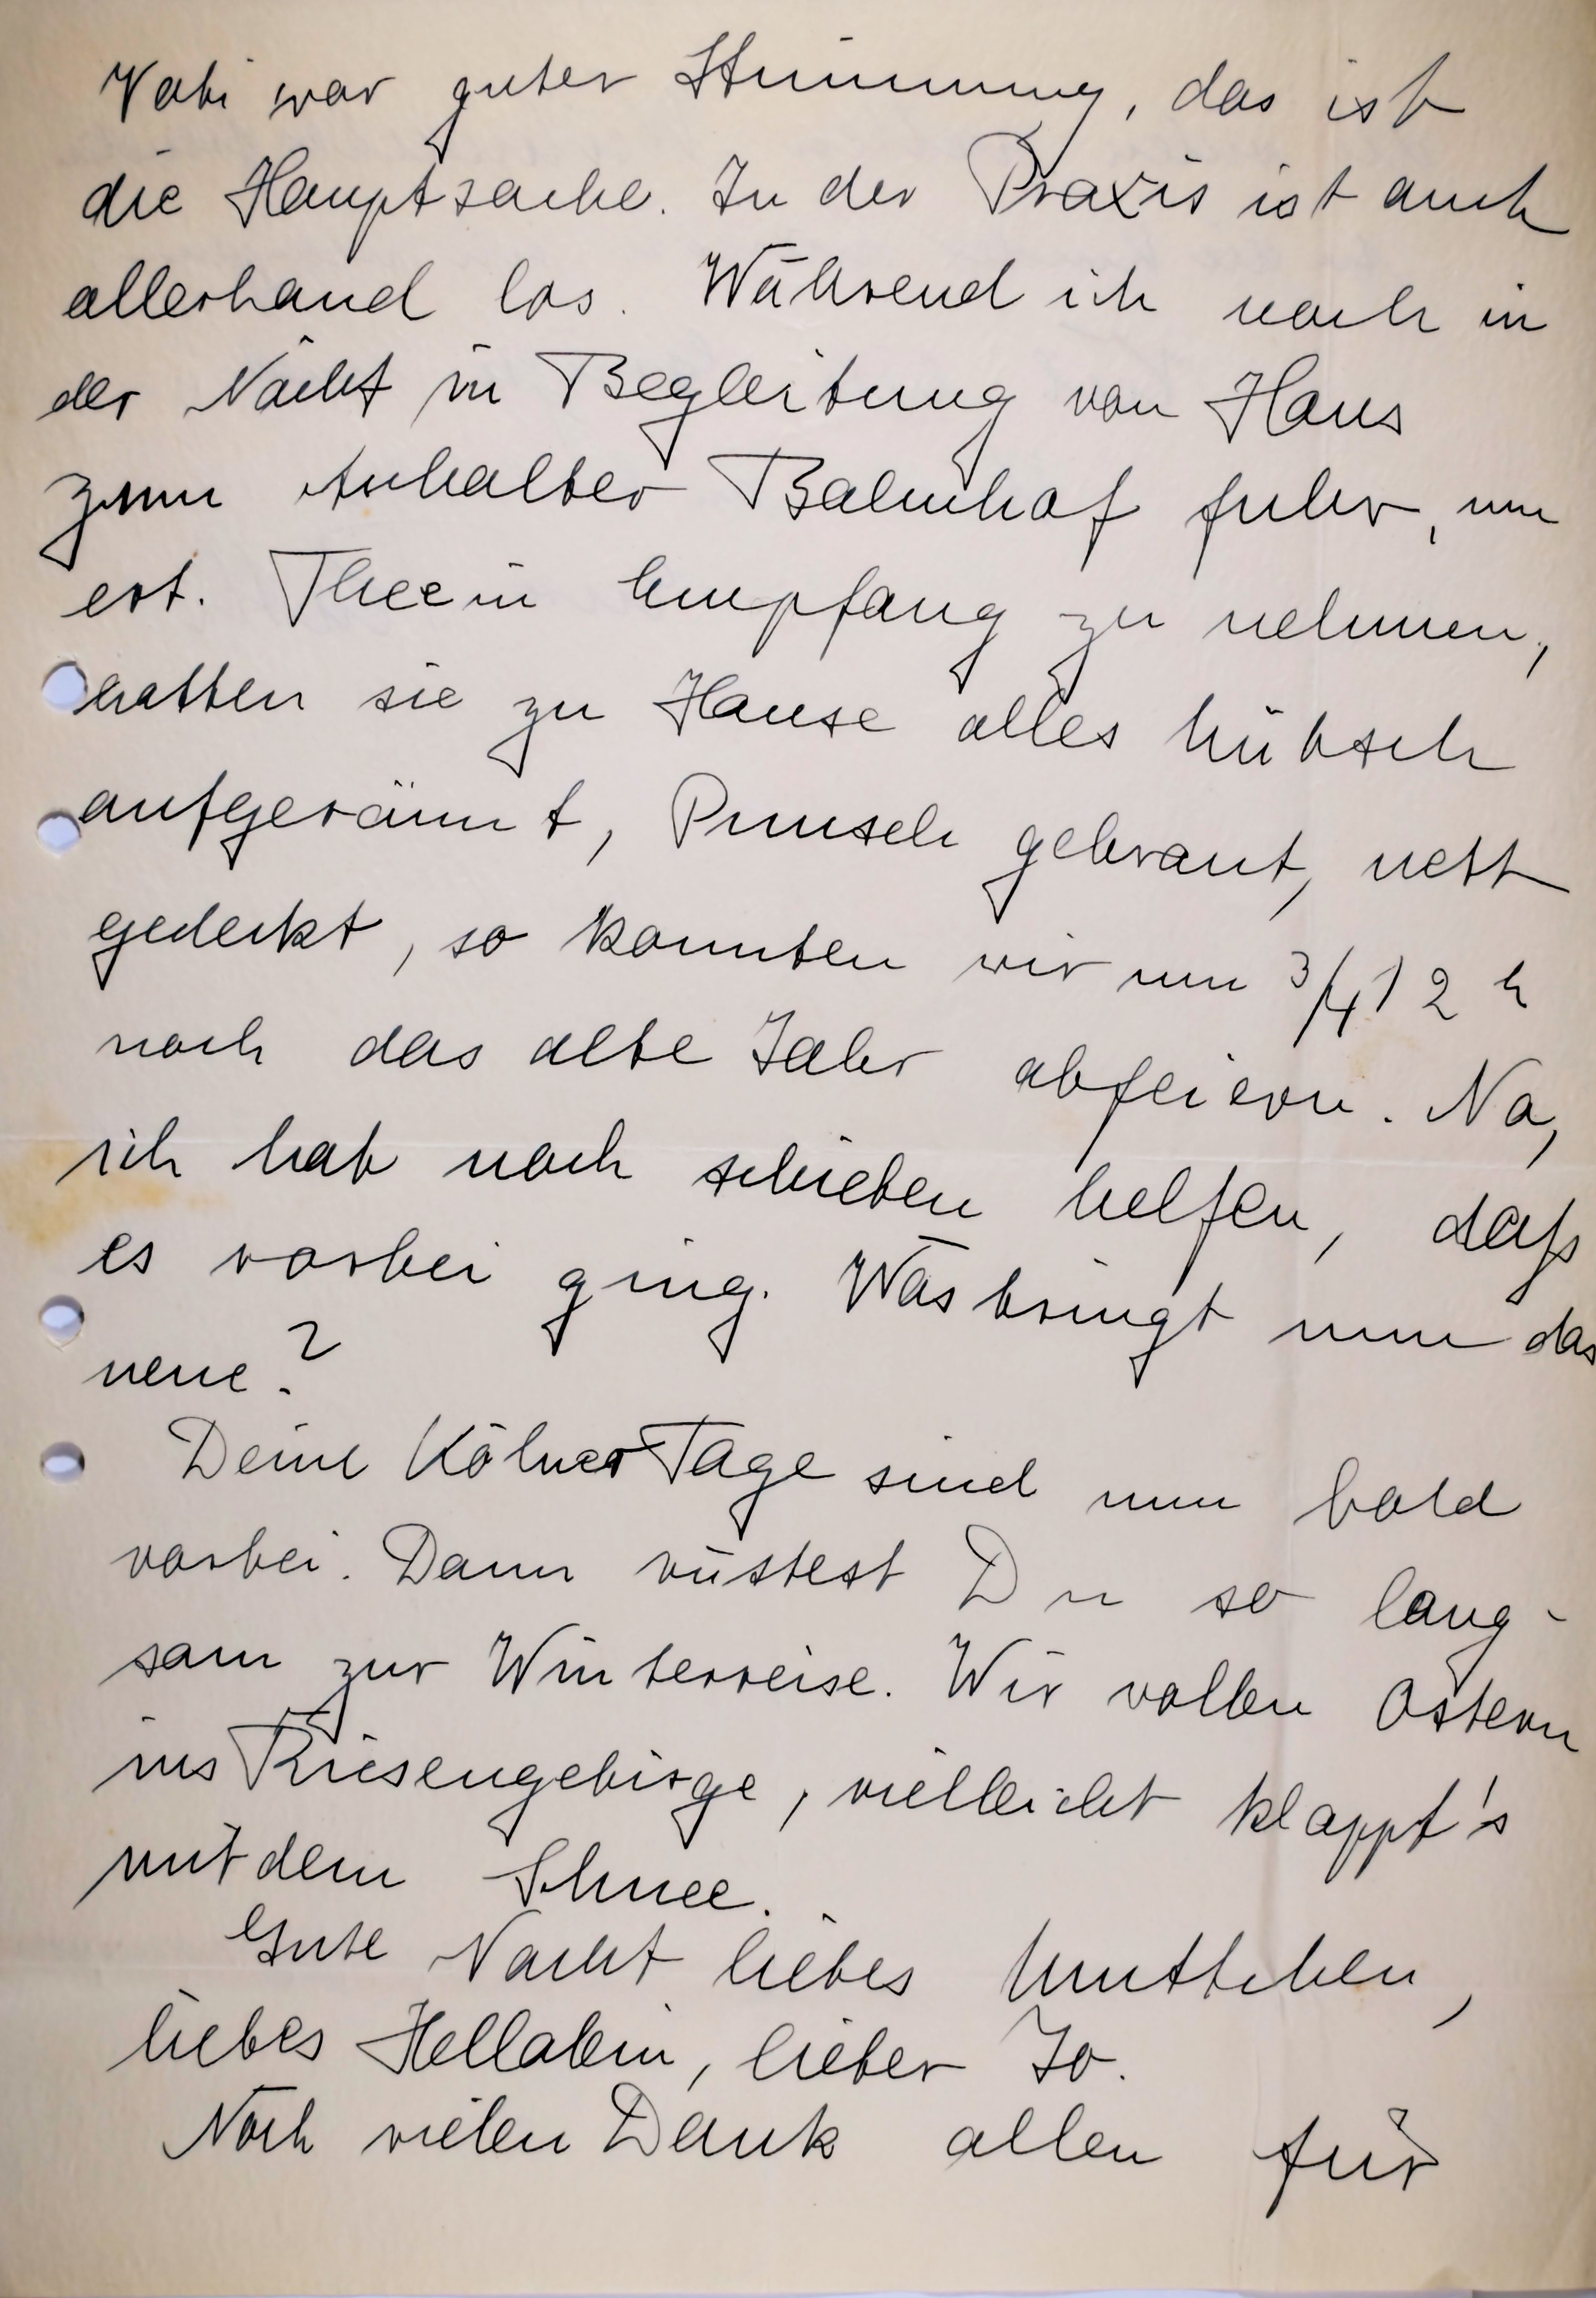 Vati war guter Stimmung, das ist
die Hauptsache. In der Praxis ist auch
allerhand los. Während ich noch in
der Nacht in Begleitung von Hans
zum Anhalter Bahnhof fuhr, um
erst. Thee in Empfang zu nehmen,
hatten sie zu Hause alles hübsch
aufgeräumt, Punsch gebraut, nett
gedeckt, so konnten wir um 3/4 12 h
noch das alte Jahr abfeiern. Na,
ich hab noch schieben helfen, daß
es vorbei ging. Was bringt nun das
neue?
Deine Kölner Tage sind nun bald
vorbei. Dann rüstest Du so lang-
sam zur Winterreise. Wir wollen Ostern
ins Riesengebirge, vielleicht klappt's
mit dem Schnee.
Gute Nacht liebes Muttchen,
liebes Hellalein, lieber Jo.
Noch vielen Dank allen für